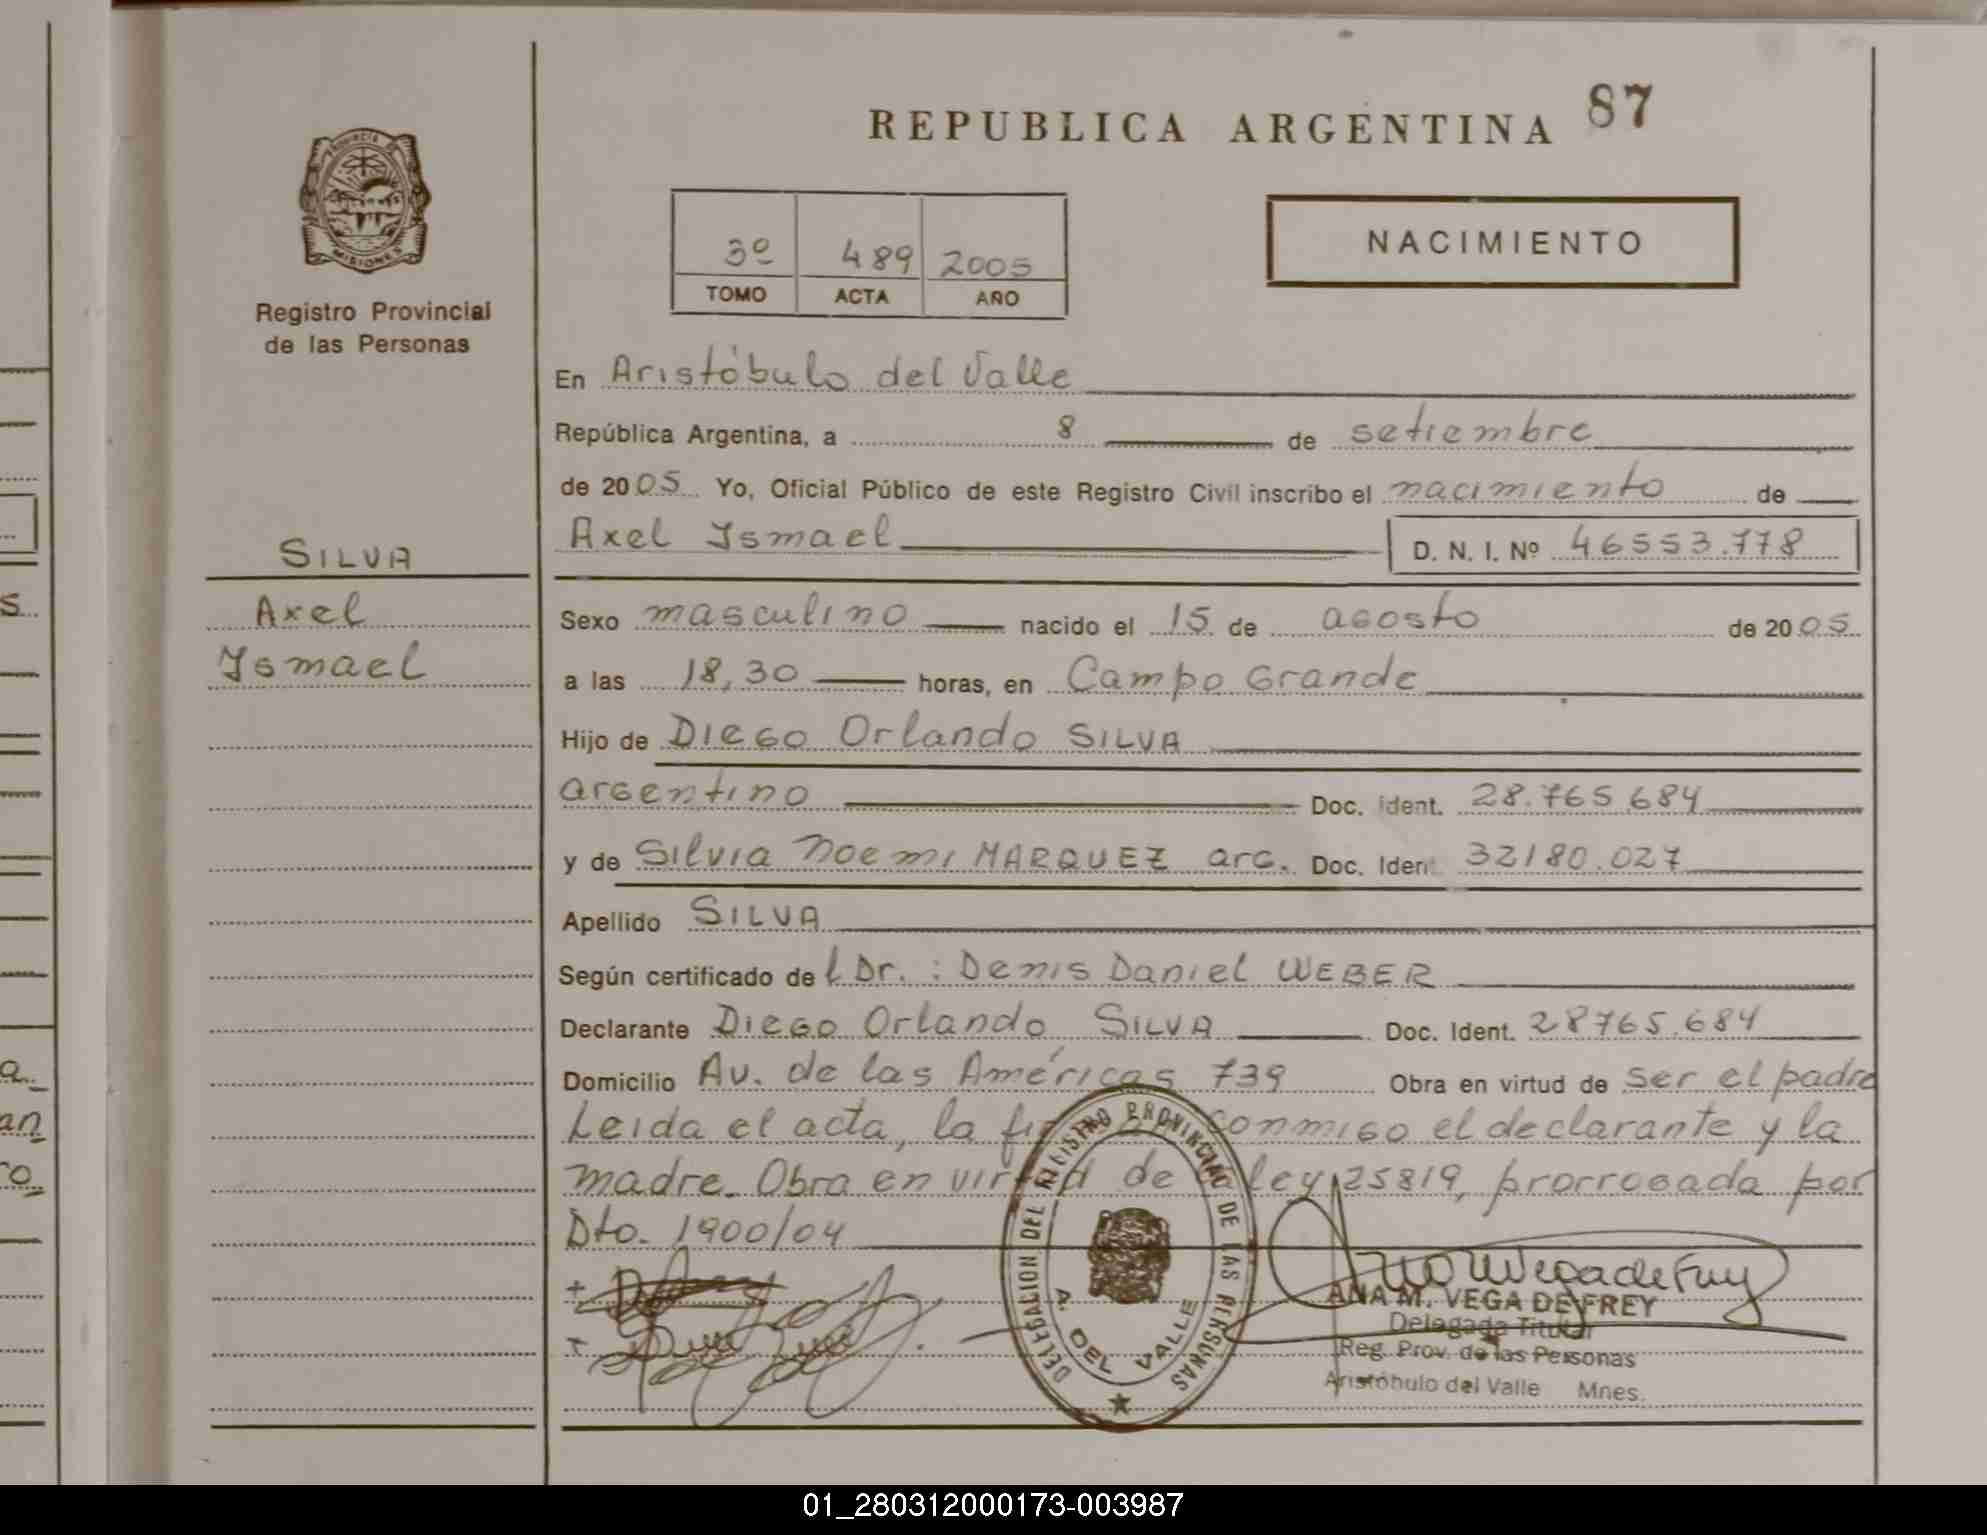 REPUBLICA ARGENTINA 87
PROVINCIA DE
MISIONES
Registro Provincial
de las Personas
3º 489 2005
TOMO ACTA AÑO
NACIMIENTO
SILVA
Axel
Ismael
En Aristóbulo del Valle
República Argentina, a 8 de setiembre
de 2005 Yo, Oficial Público de este Registro Civil inscribo el nacimiento de
Axel Ismael D. N. I. Nº 46553.778
Sexo masculino nacido el 15 de agosto de 2005
a las 18,30 horas, en Campo Grande
Hijo de Diego Orlando SILVA
argentino Doc. ident. 28.765.684
y de Silvia Noemi MARQUEZ arg. Doc. Ident. 32180.027
Apellido SILVA
Según certificado de l Dr. : Denis Daniel WEBER
Declarante Diego Orlando SILVA Doc. Ident. 28765.684
Domicilio Av. de las Américas 739 Obra en virtud de ser el padre
Leida el acta, la conmigo el declarante y la
madre. Obra en virtud de la ley 25819, prorrogada por
Dto. 1900/04
DELEGACION DEL REGISTRO PROVINCIAL DE LAS PERSONAS
A. DEL VALLE
Ana M Vega de Frey
ANA M. VEGA DE FREY
Delegada Titular
Reg. Prov. de las Personas
Aristóbulo del Valle Mnes.
01_280312000173-003987